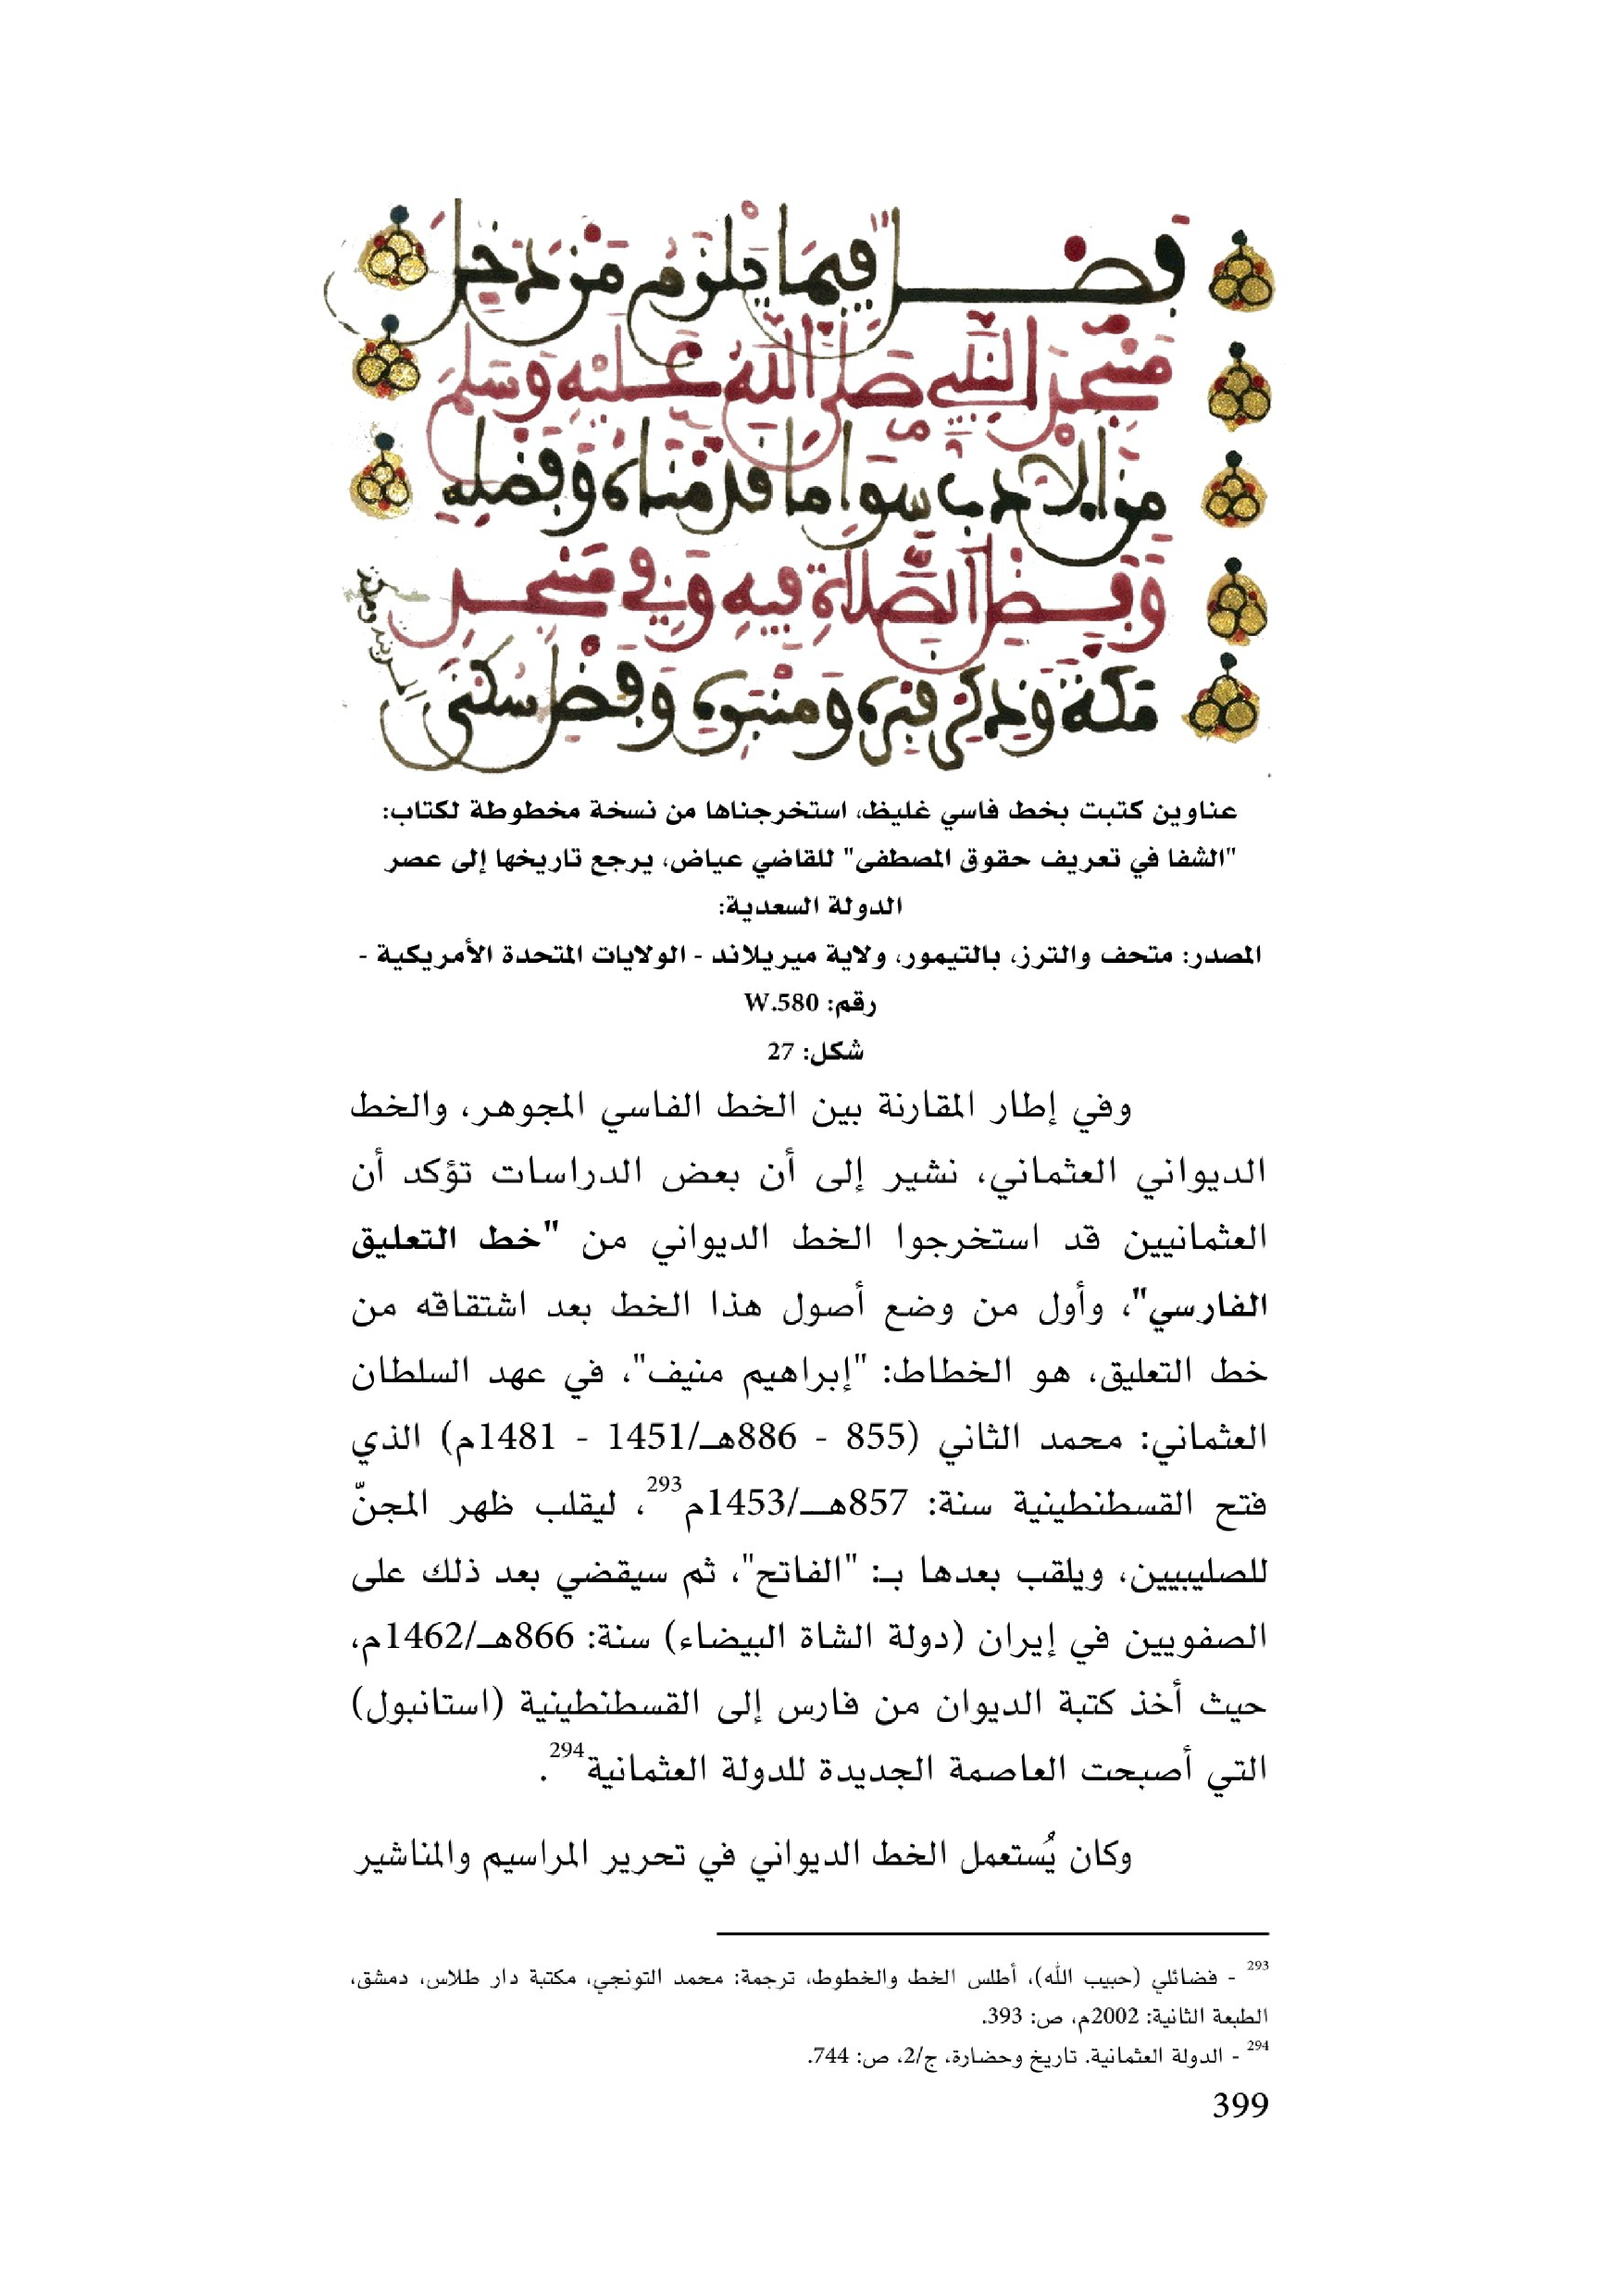 فصل فيما يلزم من دخل
مسجد النبي صلى الله عليه وسلم
من الادب سوا ما قدمناه وفضله
وفضل الصلاة فيه وفي مسجد
مكة وذكر قبره ومنبره وفضل سكنى
عناوين كتبت بخط فاسي غليظ، استخرجناها من نسخة مخطوطة لكتاب:
"الشفا في تعريف حقوق المصطفى" للقاضي عياض، يرجع تاريخها إلى عصر
الدولة السعدية:
المصدر: متحف والترز، بالتيمور، ولاية ميريلاند - الولايات المتحدة الأمريكية -
رقم: W.580
شكل: 27
وفي إطار المقارنة بين الخط الفاسي المجوهر، والخط
الديواني العثماني، نشير إلى أن بعض الدراسات تؤكد أن
العثمانيين قد استخرجوا الخط الديواني من "خط التعليق
الفارسي"، وأول من وضع أصول هذا الخط بعد اشتقاقه من
خط التعليق، هو الخطاط: "إبراهيم منيف"، في عهد السلطان
العثماني: محمد الثاني (855 - 886هـ/1451 - 1481م) الذي
فتح القسطنطينية سنة: 857هـ/1453م293، ليقلب ظهر المجنّ
للصليبيين، ويلقب بعدها بـ: "الفاتح"، ثم سيقضي بعد ذلك على
الصفويين في إيران (دولة الشاة البيضاء) سنة: 866هـ/1462م،
حيث أخذ كتبة الديوان من فارس إلى القسطنطينية (استانبول)
التي أصبحت العاصمة الجديدة للدولة العثمانية294.
وكان يُستعمل الخط الديواني في تحرير المراسيم والمناشير
293 - فضائلي (حبيب الله)، أطلس الخط والخطوط، ترجمة: محمد التونجي، مكتبة دار طلاس، دمشق،
الطبعة الثانية: 2002م، ص: 393.
294 - الدولة العثمانية. تاريخ وحضارة، ج/2، ص: 744.
399